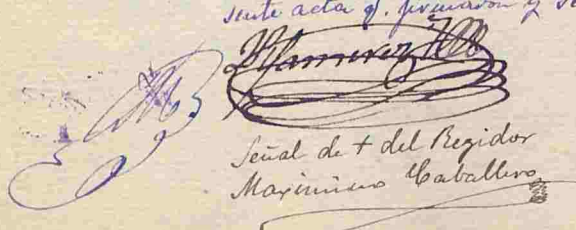 sente acta q. firmaron y se
Ramirez
Señal de + del Regidor
Maximiano Caballero